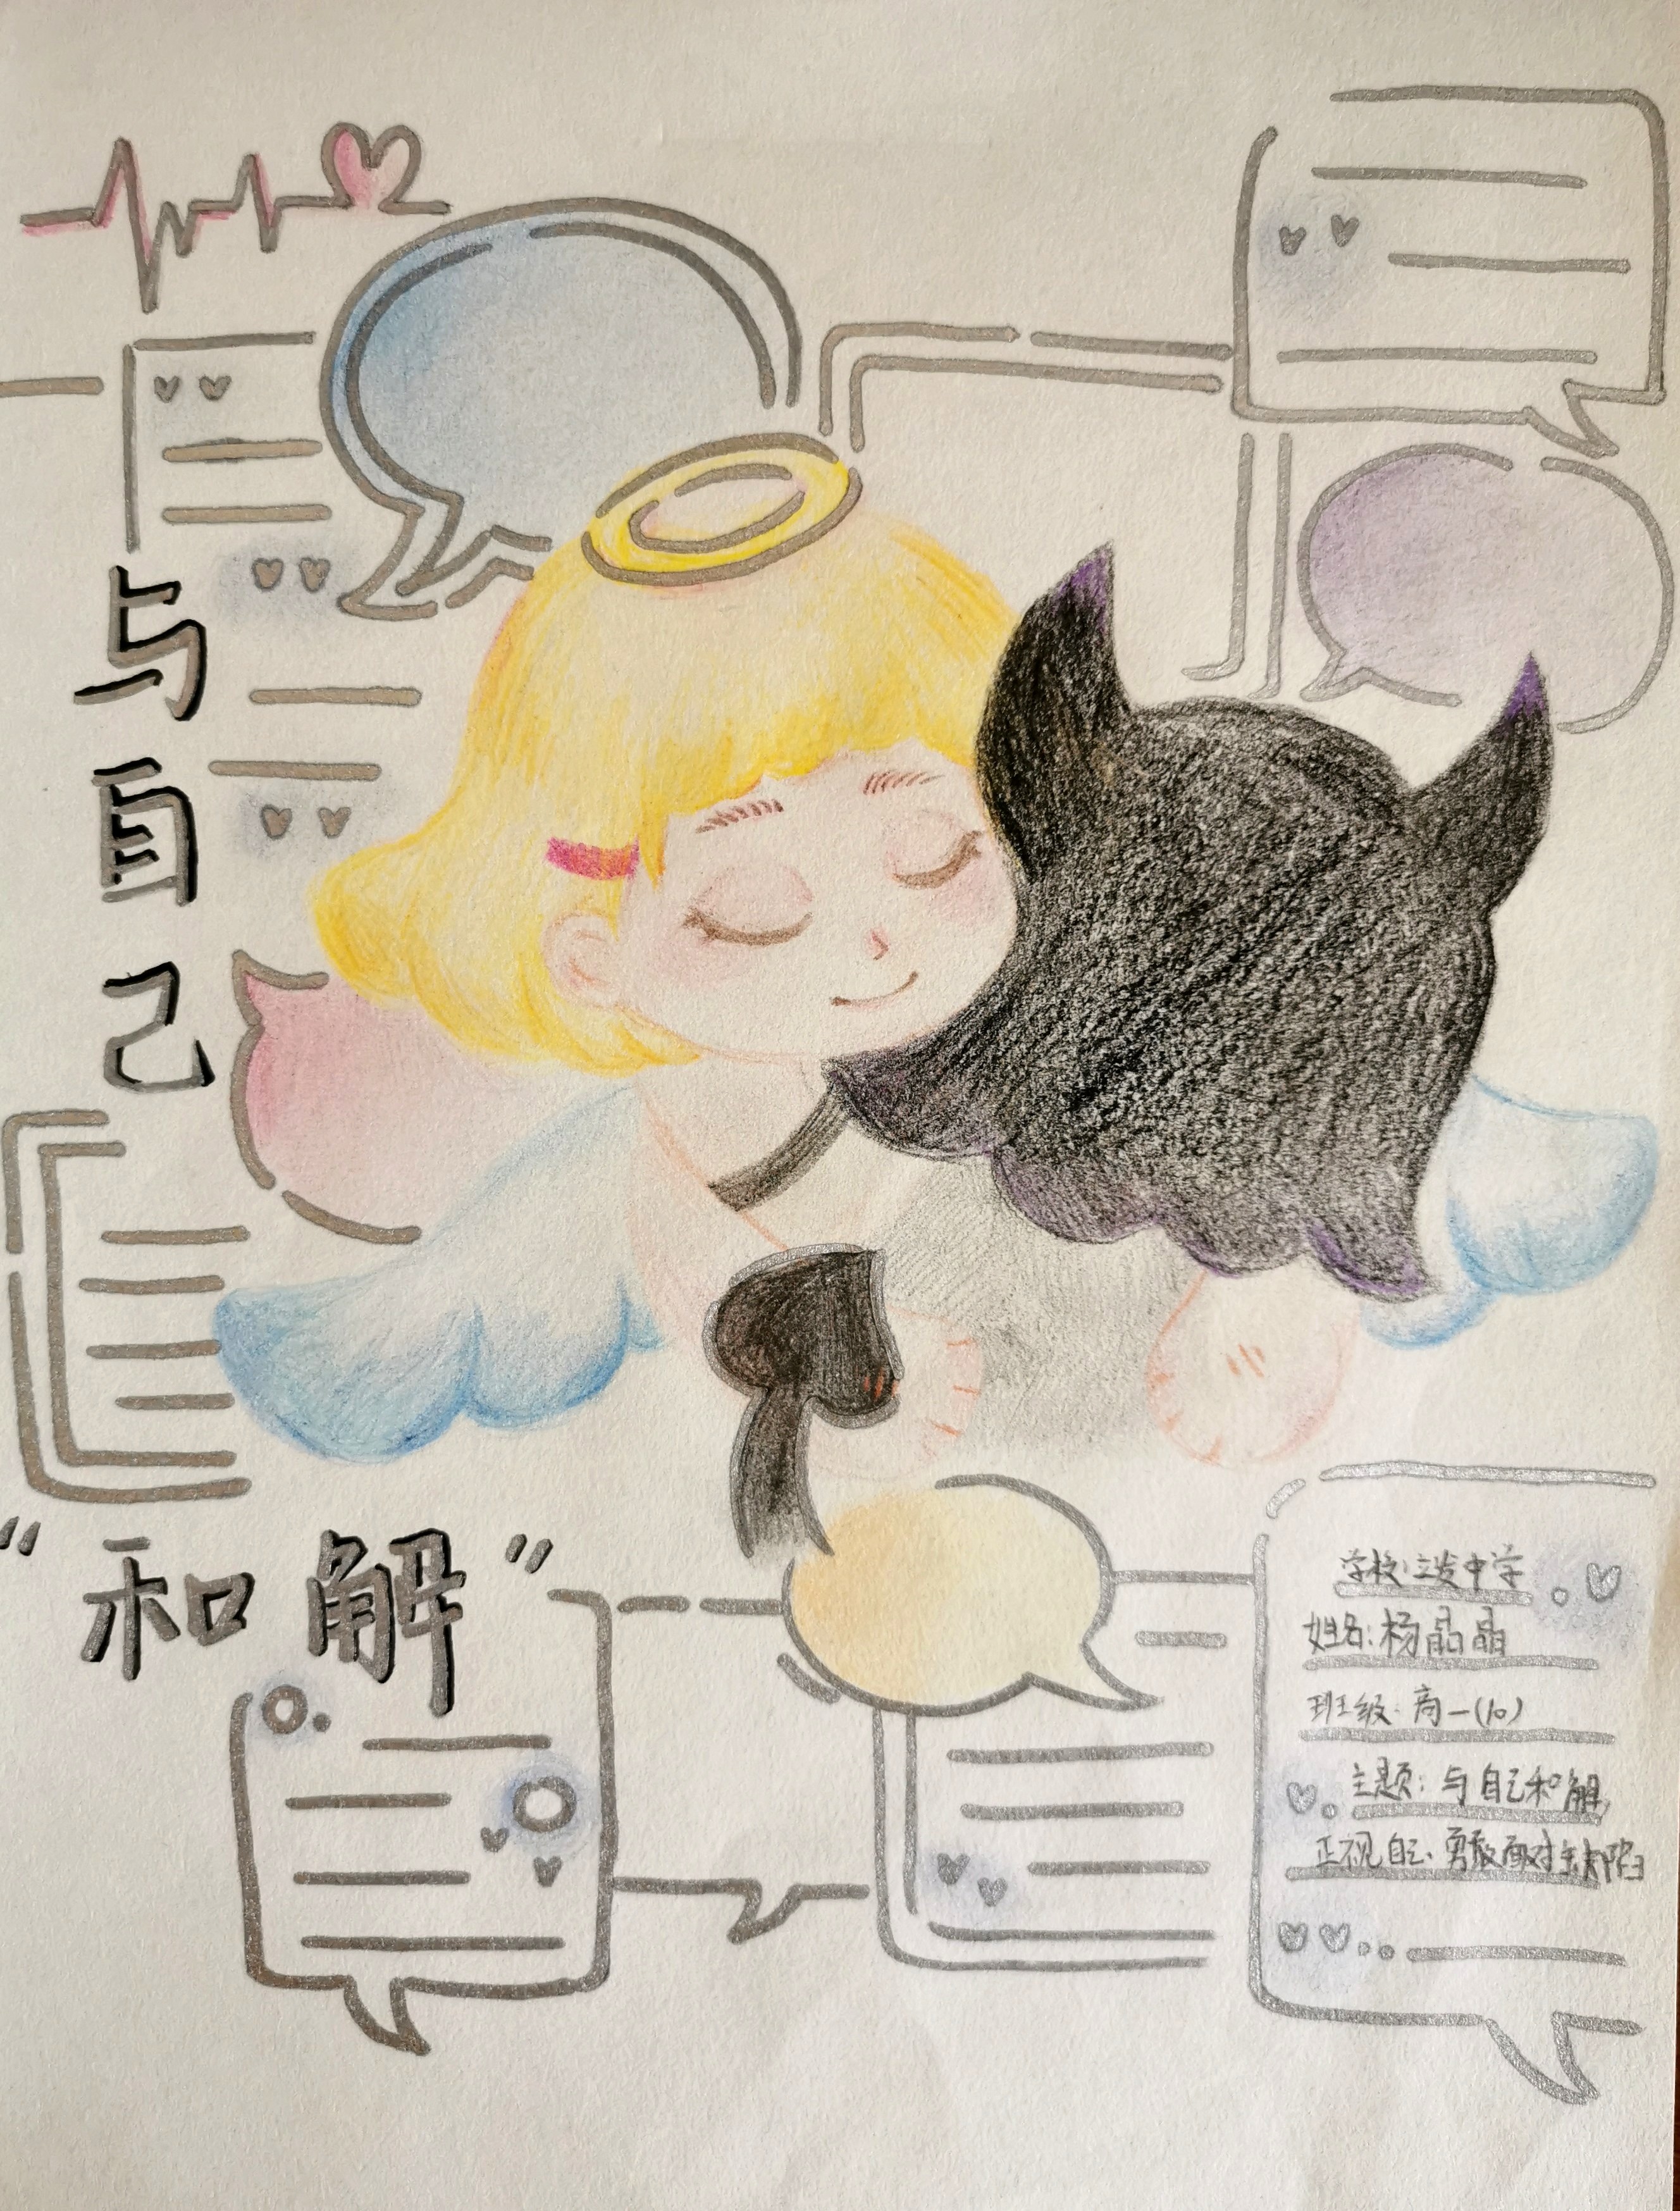 与
自
己
“和解”
学校:立发中学
姓名:杨晶晶
班级:高一(10)
主题:与自己和解,
正视自己、勇敢面对缺陷